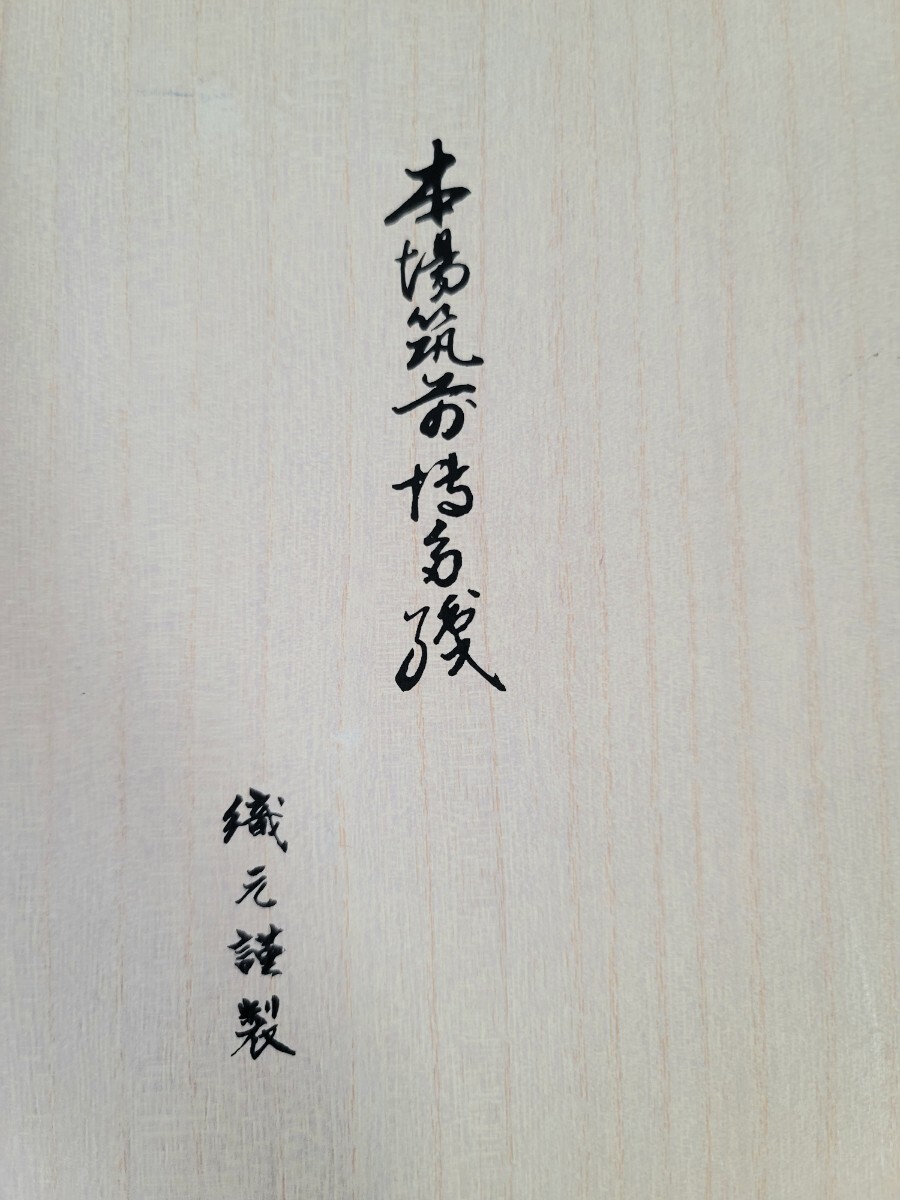 本場筑前博多織
織元謹製